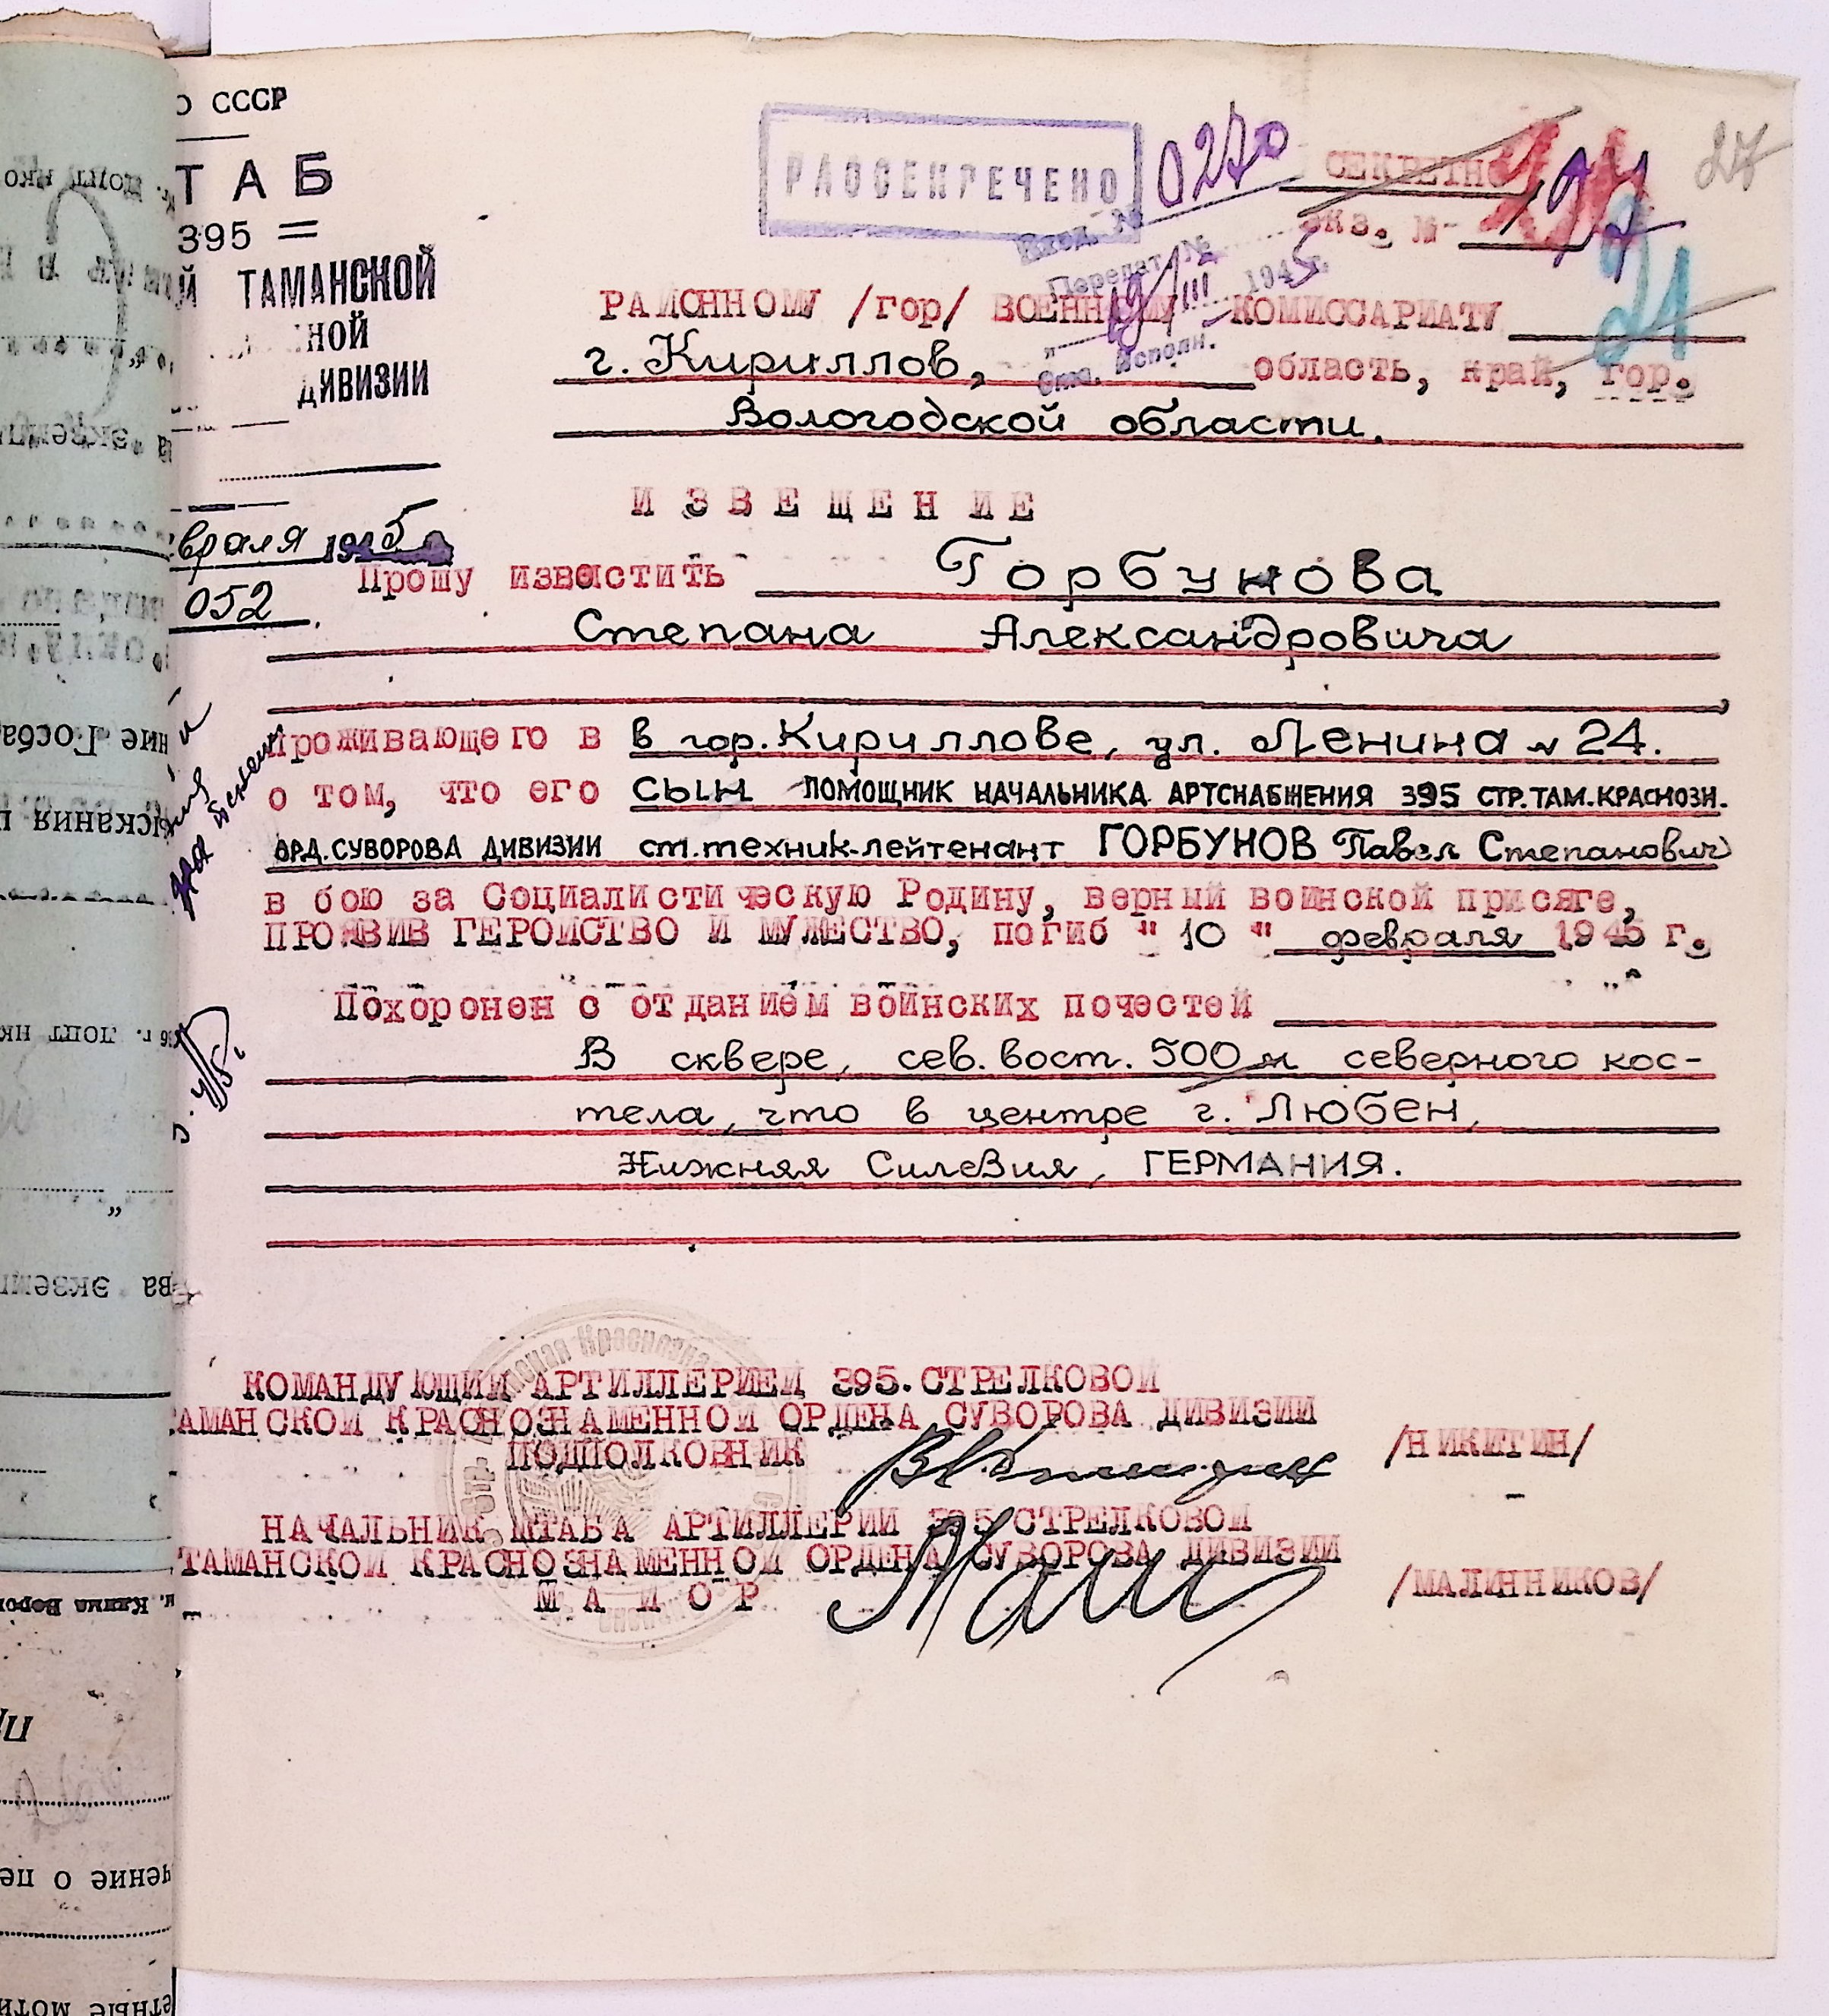 О СССР
ТАБ
395 =
Й ТАМАНСКОЙ
НОЙ
ДИВИЗИИ
враля 1945
052
РАССЕКРЕЧЕНО
0270
СЕКРЕТНО
27
Вход. №
экз. №
197
Передат. №
21
19/III 1945 г.
Отв. исполн.
РАЙОННОМУ /гор/ ВОЕННОМУ КОМИССАРИАТУ
г. Кириллов, область, край, гор.
Вологодской области.
ИЗВЕЩЕНИЕ
Прошу известить Горбунова
Степана Александровича
,
проживающего в в гор. Кириллове, ул. Ленина № 24.
о том, что его сын ПОМОЩНИК НАЧАЛЬНИКА АРТСНАБЖЕНИЯ 395 СТР. ТАМ. КРАСНОЗН.
ОРД. СУВОРОВА ДИВИЗИИ ст. техник-лейтенант ГОРБУНОВ Павел Степанович
в бою за Социалистическую Родину, верный воинской присяге,
ПРОЯВИВ ГЕРОЙСТВО И МУЖЕСТВО, погиб "10" февраля 1945 г.
Похоронен с отданием воинских почестей
В сквере, сев. вост. 500 м северного кос-
тела, что в центре г. Любен,
Нижняя Силезия, ГЕРМАНИЯ.
КОМАНДУЮЩИЙ АРТИЛЛЕРИЕЙ 395.СТРЕЛКОВОЙ
ТАМАНСКОЙ КРАСНОЗНАМЕННОЙ ОРДЕНА СУВОРОВА ДИВИЗИИ
ПОДПОЛКОВНИК /НИКИТИН/
НАЧАЛЬНИК ШТАБА АРТИЛЛЕРИИ 395 СТРЕЛКОВОЙ
ТАМАНСКОЙ КРАСНОЗНАМЕННОЙ ОРДЕНА СУВОРОВА ДИВИЗИИ
МАЙОР /МАЛИННИКОВ/